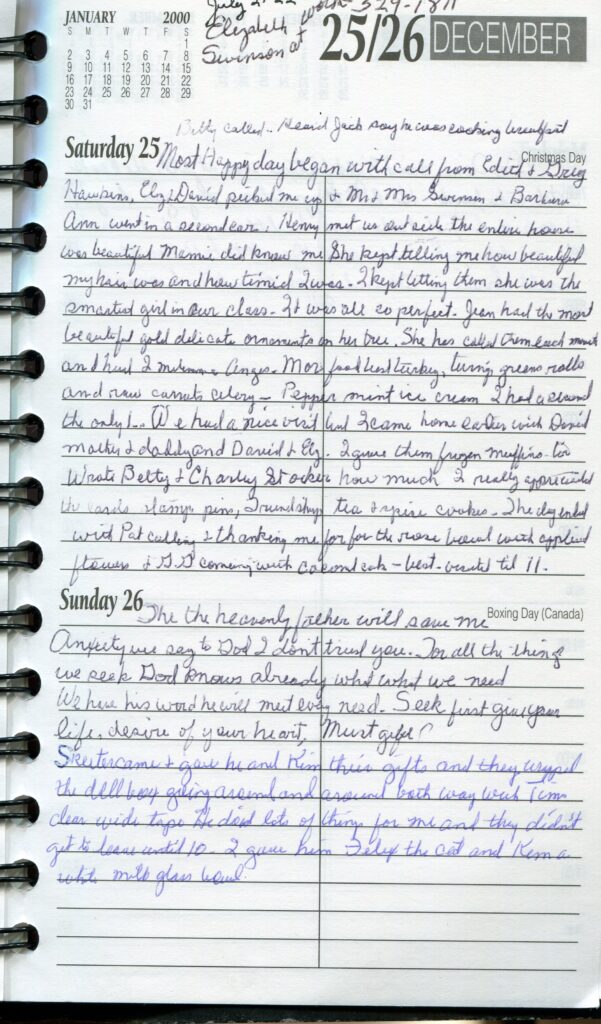 July 2 - 22
work 329-1871
Elizabeth
Swinson at
JANUARY 2000
S M T W T F S
1
2 3 4 5 6 7 8
9 10 11 12 13 14 15
16 17 18 19 20 21 22
23 24 25 26 27 28 29
30 31
25/26 DECEMBER
Betty called.. Heard Jack say he was cooking breakfast
Saturday 25
Christmas Day
Most Happy day began with call from Edith & Greg
Hawkins, Elz & David picked me up & Mr & Mrs Swinson & Barbara
Ann went in a second car. Henry met us outside the entire house
was beautiful Mamie did know me She kept telling me how beautiful
my hair was and how timid I was. I kept letting them she was the
smartest girl in our class. It was all so perfect. Jean had the most
beautiful gold delicate ornaments on her tree. She has called them each month
and had 2 Angels. food turkey, turnip greens rolls
and raw carrots celery - Pepper mint ice cream I had a second
the only 1.. We had a nice visit but I came home earlier with David
mother & daddy and David & Elz. I gave them frozen muffins too
Wrote Betty & Charley Stocker how much I really appreciated
the cards stamps pins, Friendship tea & spice cookies - The day ended
with Pat calling & thanking me for for the rose bowl with applied
flowers & coming with coconut cake - best - visited til 11.
Sunday 26
Boxing Day (Canada)
The the heavenly father will save me
Anxiety we say to God I don't trust you. For all the things
we seek God knows already what what we need
We have his word he will meet every need. Seek first give your
life, desire of your heart, Must
Skeeter came & gave he and Kim their gifts and they wrapped
the doll box going around and around both way with
clear wide tape He did lots of things for me and they didn't
get to leave until 10 - I gave him Felix the cat and Kim a
white milk glass bowl.